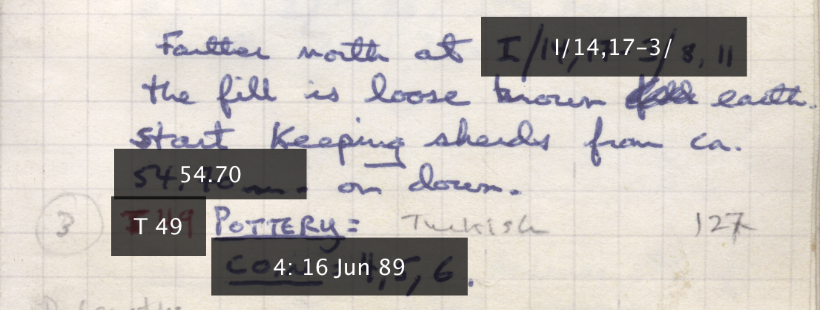 Farther north at I/14,17-3/8, 11
the fill is loose brown earth.
Start Keeping sherds from ca.
54.70 m. on down.
3 T 49 POTTERY = Turkish 127
4: 16 Jun 89 4, 5, 6.